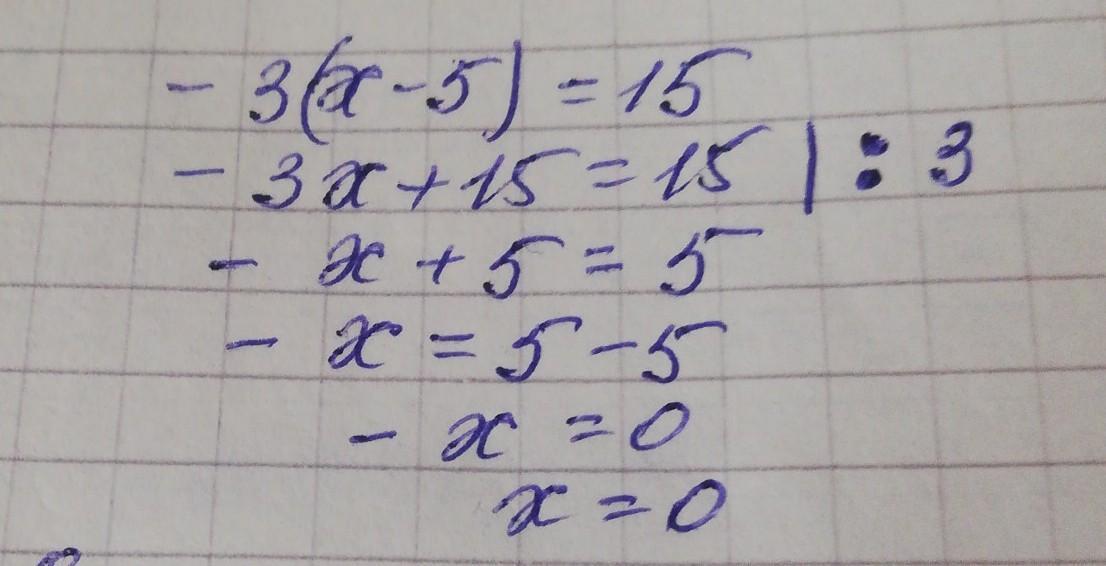 - 3(x-5) = 15
- 3x+15 = 15 | : 3
- x + 5 = 5
- x = 5 - 5
- x = 0
x = 0